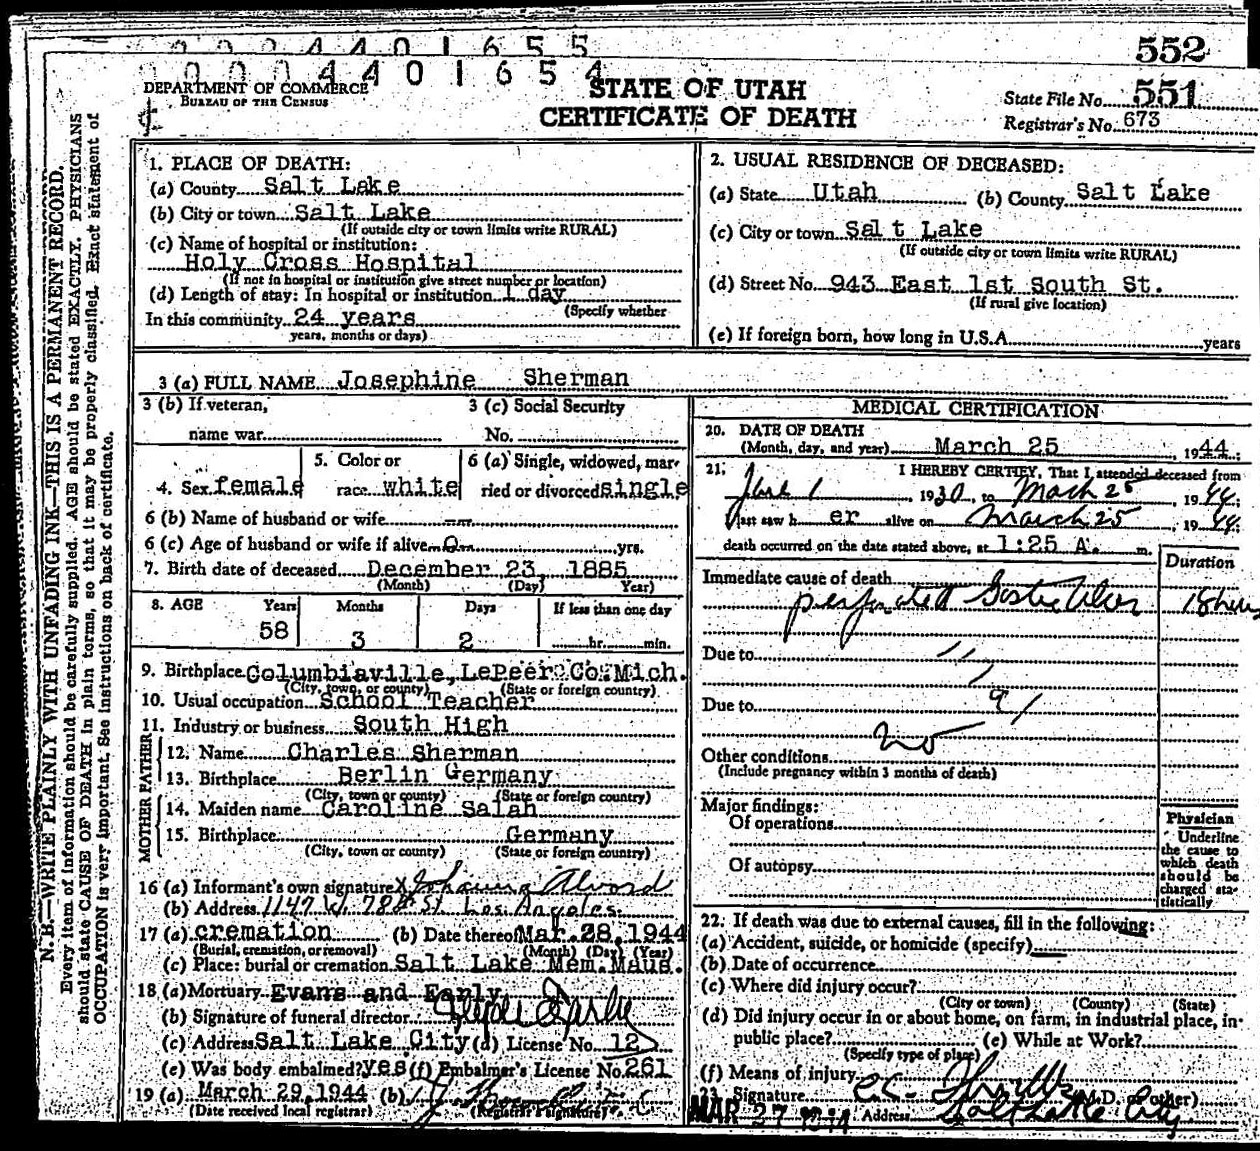 0 0 0 4 4 0 1 6 5 5
552
0 0 0 4 4 0 1 6 5 4
DEPARTMENT OF COMMERCE
BUREAU OF THE CENSUS
STATE OF UTAH
CERTIFICATE OF DEATH
State File No. 551
Registrar's No. 673
N. B.—WRITE PLAINLY WITH UNFADING INK—THIS IS A PERMANENT RECORD.
Every item of information should be carefully supplied. AGE should be stated EXACTLY. PHYSICIANS
should state CAUSE OF DEATH in plain terms, so that it may be properly classified. Exact statement of
OCCUPATION is very important. See instructions on back of certificate.
1. PLACE OF DEATH:
(a) County Salt Lake
(b) City or town Salt Lake
(If outside city or town limits write RURAL)
(c) Name of hospital or institution:
Holy Cross Hospital
(If not in hospital or institution give street number or location)
(d) Length of stay: In hospital or institution 1 day
(Specify whether
In this community 24 years
years, months or days)
2. USUAL RESIDENCE OF DECEASED:
(a) State Utah (b) County Salt Lake
(c) City or town Salt Lake
(If outside city or town limits write RURAL)
(d) Street No. 943 East 1st South St.
(If rural give location)
(e) If foreign born, how long in U.S.A. years
3 (a) FULL NAME Josephine Sherman
3 (b) If veteran, 3 (c) Social Security
name war No.
4. Sex female
5. Color or
race white
6 (a) Single, widowed, mar-
ried or divorced single
6 (b) Name of husband or wife ---
6 (c) Age of husband or wife if alive 0 yrs.
7. Birth date of deceased December 23 1885
(Month) (Day) Year)
8. AGE Years Months Days If less than one day
58 3 2 hr. min.
9. Birthplace Columbiaville, LePeer Co. Mich.
(City, town, or county) (State or foreign country)
10. Usual occupation School Teacher
11. Industry or business South High
FATHER
12. Name Charles Sherman
13. Birthplace Berlin Germany
(City, town or county) (State or foreign country)
MOTHER
14. Maiden name Caroline Salah
15. Birthplace Germany
(City, town or county) (State or foreign country)
16 (a) Informant's own signature X Johanna Alvord
(b) Address 1147 W. 78th St. Los Angeles.
17 (a) cremation (b) Date thereof Mar. 28, 1944
(Burial, cremation, or removal) (Month) (Day) (Year)
(c) Place: burial or cremation Salt Lake Mem. Maus.
18 (a) Mortuary Evans and Early
(b) Signature of funeral director
(c) Address Salt Lake City (d) License No. 12
(e) Was body embalmed? yes (f) Embalmer's License No. 261
19 (a) March 29, 1944 (b)
(Date received local registrar) (Registrar's signature)
MEDICAL CERTIFICATION
20. DATE OF DEATH
(Month, day, and year) March 25, 1944;
21. I HEREBY CERTIFY, That I attended deceased from
1, 1930, to March 25 1944;
I last saw her alive on March 25, 1944;
death occurred on the date stated above, at 1:25 A. m.
Duration
Immediate cause of death
perforated Gastric Ulcer 18 hrs
Due to
Due to
Other conditions no
(Include pregnancy within 3 months of death)
Major findings:
Of operations
Of autopsy
Physician
Underline
the cause to
which death
should be
charged sta-
tistically
22. If death was due to external causes, fill in the following:
(a) Accident, suicide, or homicide (specify)
(b) Date of occurrence
(c) Where did injury occur?
(City or town) (County) (State)
(d) Did injury occur in or about home, on farm, in industrial place, in
public place? (e) While at Work?
(Specify type of place)
(f) Means of injury
23. Signature (M.D. or other)
MAR 27 1944 Address Salt Lake City